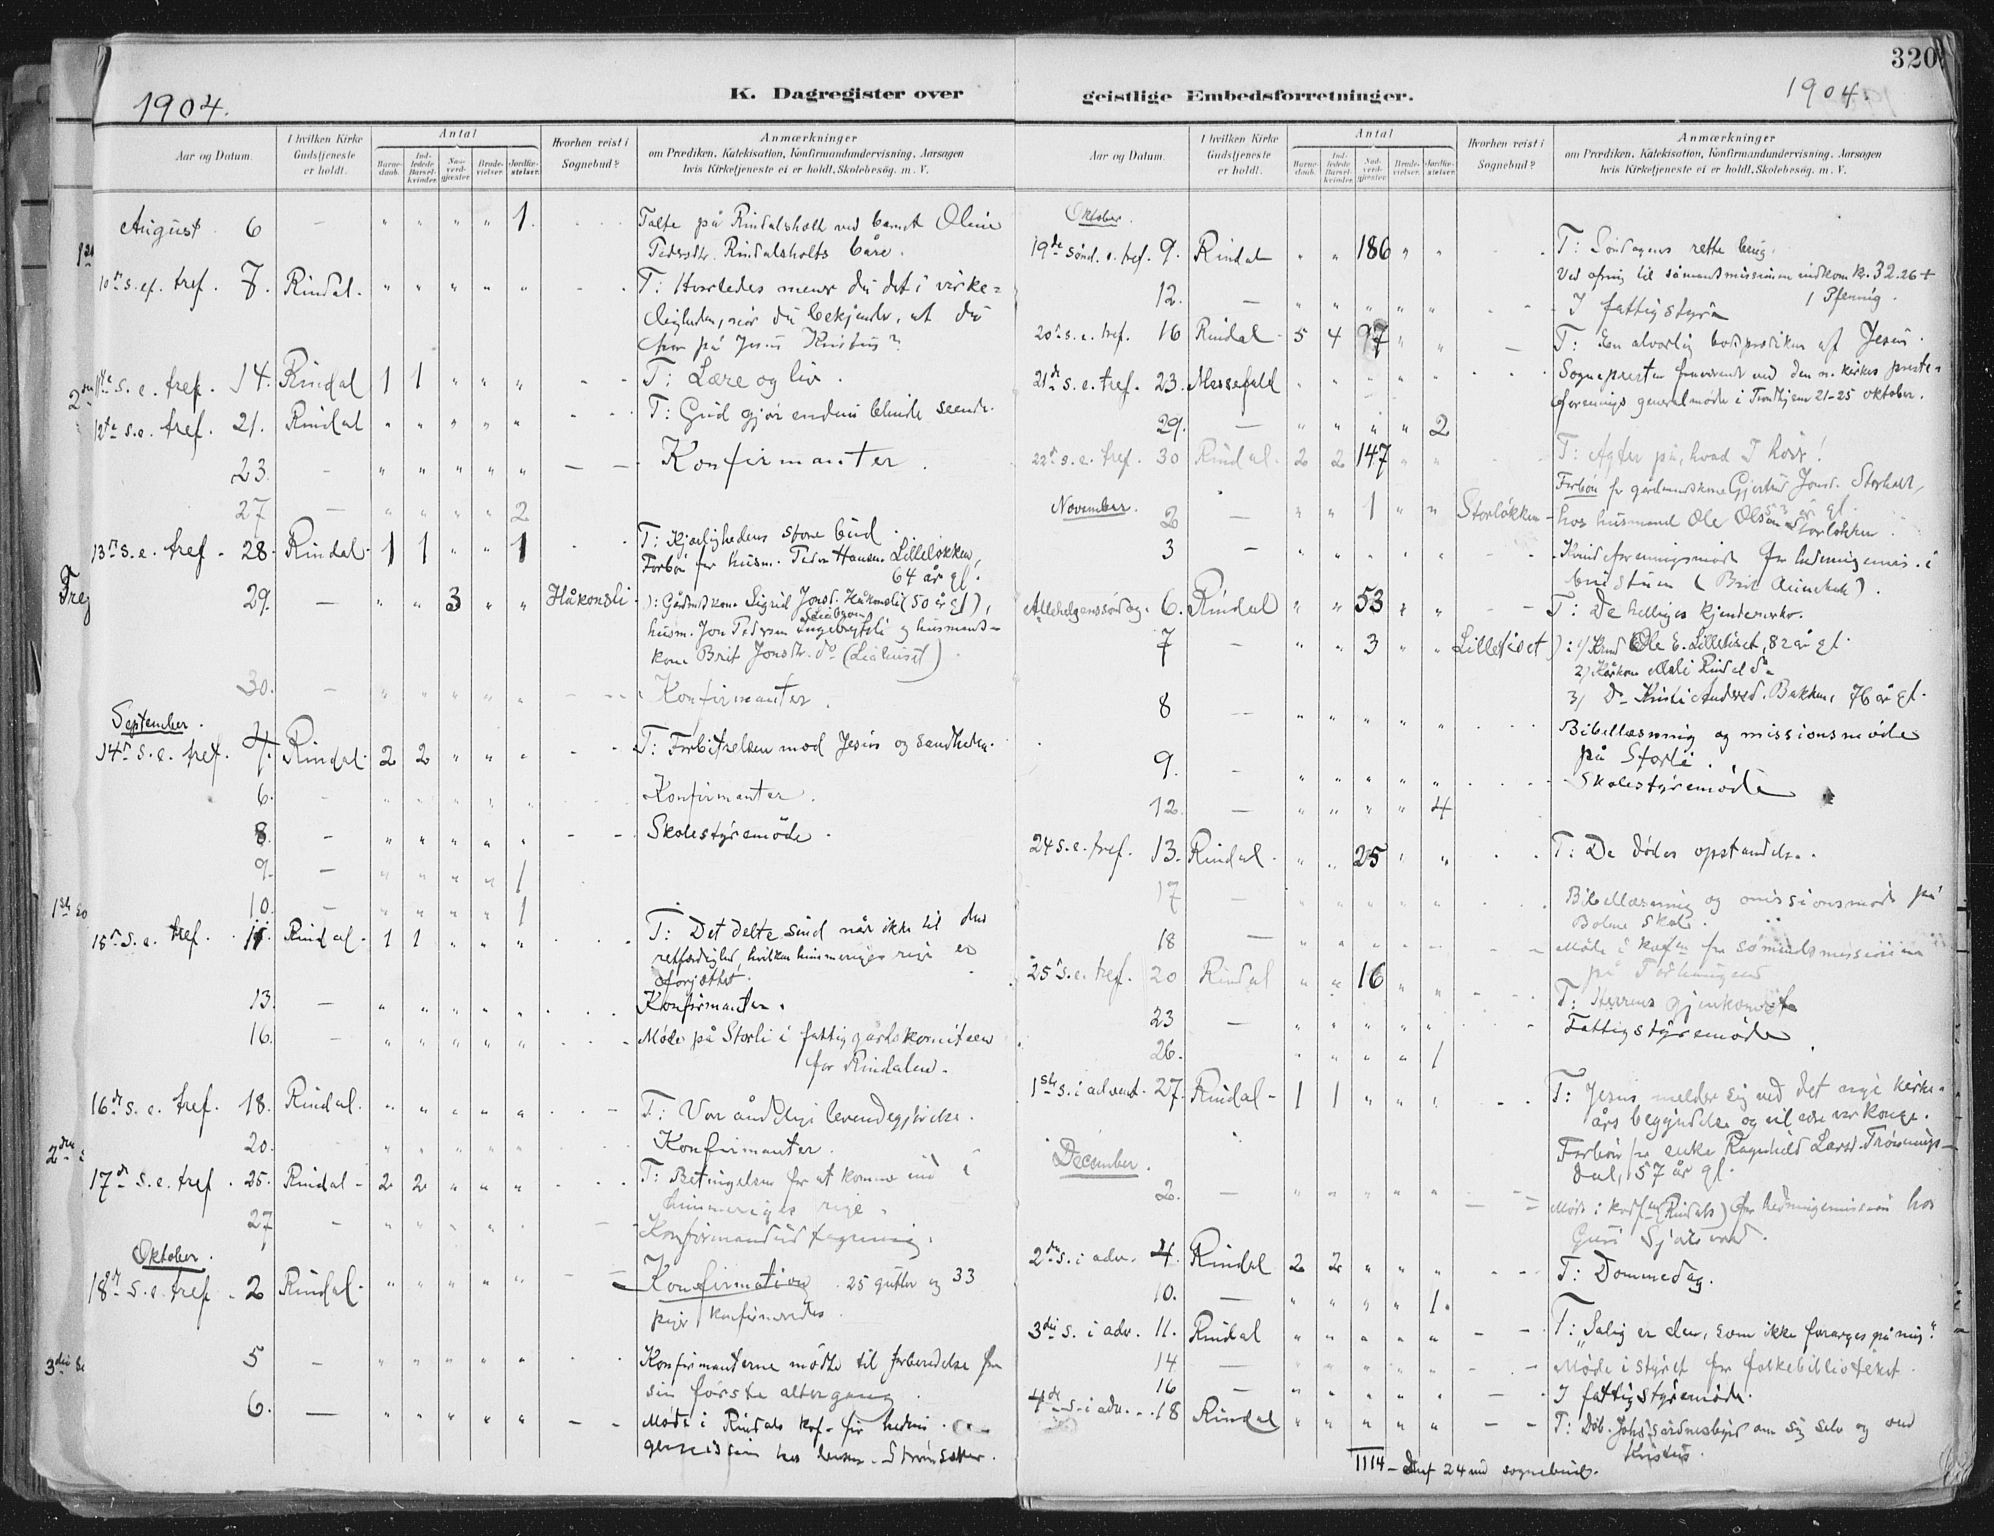 320
1904.
K. Dagregister over
Aar og Datum.
I hvilken Kirke Gudstjeneste er holdt.
Antal
Barnedaab.
Indledede Barselkvinder.
Nadverdgjester.
Brudevielser.
Jordfæstelser.
Hvorhen reist i Sognebud?
Anmærkninger
om Prædiken, Katekisation, Konfirmandundervisning, Aarsagen
hvis Kirketjeneste ei er holdt, Skolebesøg. m. V.
August 6 — " " " " 1. Talte på Rindalsholt ved barnet Oline
Pedersdtr. Rindalsholts båre.
10de s. ef. tref. 7. Rindal - " " " " " T: Hvorledes mener du det i virke=
ligheden, når du bekjender, at du
tror på Jesus Kristus?
11te s. e. tref. 14. Rindal 1 1 " " " T: Lære og liv.
12te s. e. tref. 21. Rindal " " " " " T: Gud gjør endnu blinde seende.
23. - " " " " " Konfirmanter.
27 — " " " " 2
13de s. e. tref. 28. Rindal 1 1 " " 1 T: Kjærlighedens store bud.
Forbøn for husm. Peder Hansen Lilleløkken,
64 år gl.
29. — " " 3 " " Håkonsli ): Gårdmdskone Sigrid Jonsd. Håkonsli (50 år gl),
husm. Jon Pedersen Ingebrgtsli og husmands-
kone Brit Jonsdtr. do (Liahuset)
30. - " " " " " Konfirmanter.
September.
14de s. e. tref. 4. Rindal 2 2 " " " T: Forbitrelsen mod Jesus og sandheden.
6. - " " " " " Konfirmanter.
8. - " " " " " Skolestyremöde.
9. — " " " " 1
10. — " " " " 1
15de s. e. tref. 11. Rindal 1 1 " " " T: Det delte sind når ikke til den
retfærdighed, hvilken himmeriges rige er
forjættet.
13. — " " " " " Konfirmanter.
16. — " " " " " Møde på Storli i fattiggårdskomiteen
for Rindalen.
16de s. e. tref. 18. Rindal. " " " " " T: Vor åndelige levendegjörelse.
20. - " " " " " Konfirmanter.
17de s. e. tref. 25. Rindal 2 2 " " " T: Betingelsen for at komme ind i
himmeriges rige.
27 - " " " " " Konfirmandudtagning.
Oktober.
18de s. e. tref. 2 Rindal - " " " " " Konfirmation. 25 gutter og 33
piger konfirmeredes.
5 — " " " " " Konfirmanterne mødte til forberedelse for
sin første altergang.
6. — " " " " " Møde i Rindals for hedni
1904.
geistlige Embedsforretninger.
Aar og Datum.
I hvilken Kirke Gudstjeneste er holdt.
Antal
Barnedaab.
Indledede Barselkvinder.
Nadverdgjester.
Brudevielser.
Jordfæstelser.
Hvorhen reist i Sognebud?
Anmærkninger
om Prædiken, Katekisation, Konfirmandundervisning, Aarsagen
hvis Kirketjeneste ei er holdt, Skolebesøg. m. V.
Oktober.
19de sönd. e. tref. 9. Rindal " " 186 " " T: Söndagens rette brug.
Ved ofring til sömandsmissionen indkom kr. 32.26 +
1 Pfennig.
12. — " " " " " I fattigstyre
20de s. e. tref. 16 Rindal 5 4 97 " " T: En alvorlig bodspræken af Jesus.
21de s. e. tref. 23. Messefald " " " " " Sognepresten fraværende ved den n. kirkes preste=
forenings generalmøde i Trondhjem 21-25 oktober.
29. — " " " " 2
22de s. e. tref. 30 Rindal. 2 2 147 " " T: Agter på, hvad I hörer!
Forbøn for gårdmandskone Gjertrud Jonsd. Storholt,
53 år gl.
November.
2 — " " 1 " " Storløkken hos husmand Ole Olsen Storløkken.
3 — " " " " " Kvindeforeningsmøde for hedningemis. i
Allehelgenssöndag. 6. Rindal " " 53 " " T: De helliges kjendemerker.
7 — " " 3 " " Lillesiset ): 1) Ole E. Lillesiset, 82 år gl.
2) Rindal do
3) Do Kristi Andersd. Bakken, 76 år gl.
8 — " " " " " Bibellæsning og missionsmøde
på Storli.
9. — " " " " " Skolestyremöde
12. — " " " " 4
24 s. e. tref. 13. Rindal " " 25 " " T: De dødes opstandelse.
17 — " " " " " Bibellæsning og missionsmøde på
Bolme skole.
18 — " " " " " Møde i for sömandsmissionen
på
25de s. e. tref. 20 Rindal " " 16 " " T: Herrens gjenkomst
23 — " " " " " Fattigstyremøde
26. " " " " 1
1ste s. i advent. 27. Rindal 1 1 " " " T: Jesus melder sig ved det nye kirke-
års begyndelse og vil være vor konge.
Forbøn for enke Ragnhild Larsd. Trönnings-
dal, 57 år gl.
December.
2. — " " " " " Møde i (Rindals) for hedningemission hos
Guri
2den s. i adv. 4. Rindal 2 2 " " " T: Dommedag.
10. — " " " " 1.
3die s. i adv. 11. Rindal " " " " " T: "Salig er den, som ikke forarges på mig."
14 — " " " " " Møde i styret for folkebiblioteket.
16 — " " " " " I fattigstyremøde.
4de s. i adv. 18 Rindal " " " " " T: Döb. Johs's vidnesbyrd om sig selv og om
Kristus.
1114 — 24 ved sognebud.